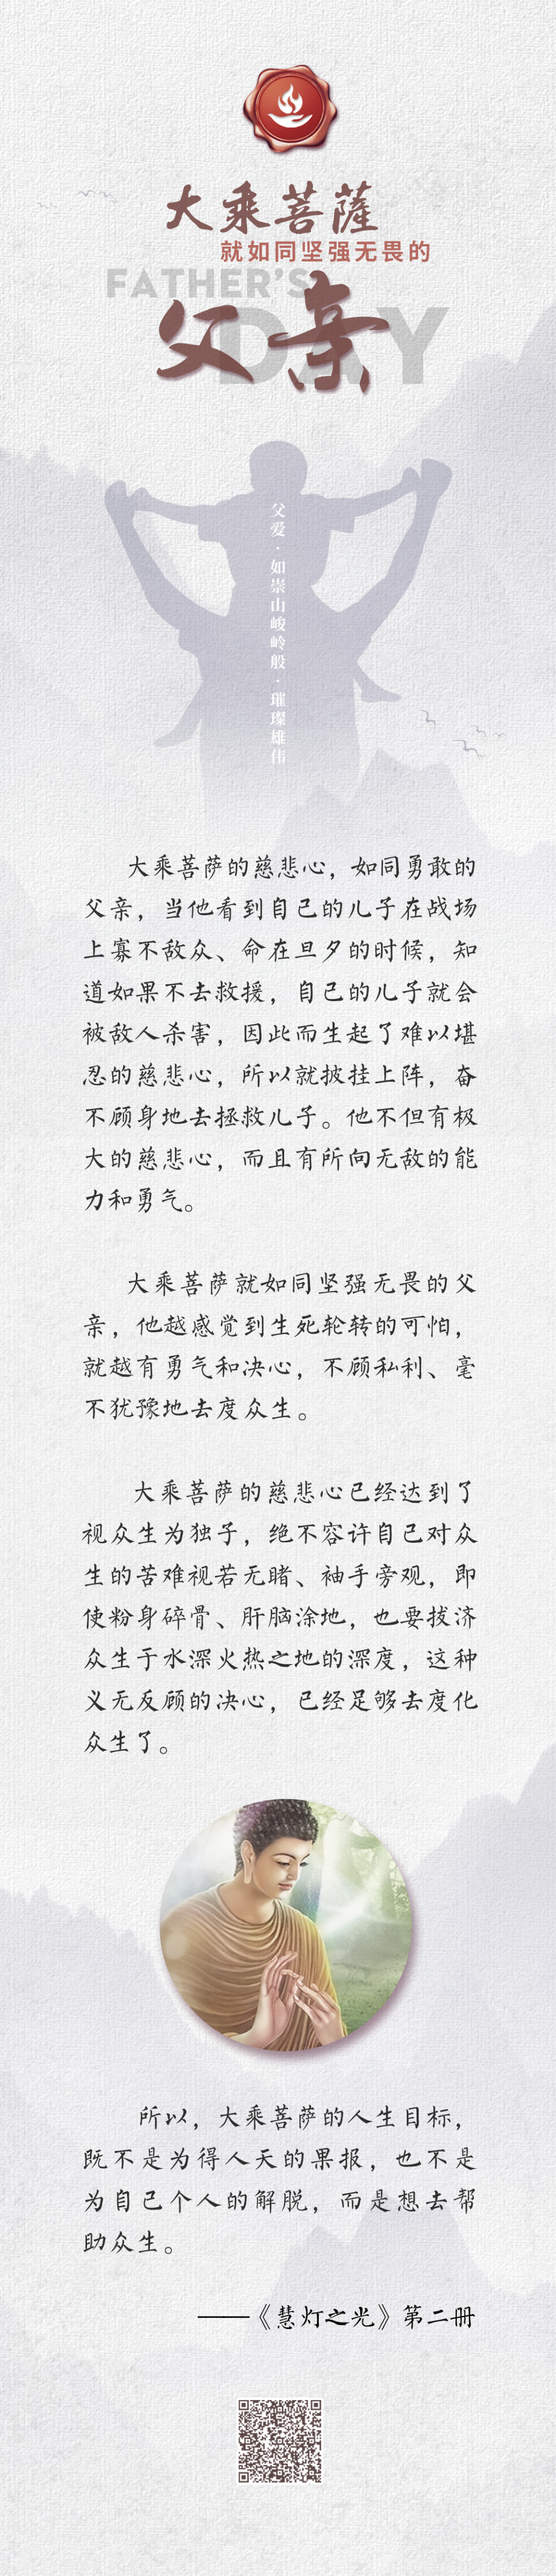 大乘菩薩
就如同坚强无畏的
FATHER'S
DAY
父亲
父爱·如崇山峻岭般·璀璨雄伟
大乘菩萨的慈悲心，如同勇敢的
父亲，当他看到自己的儿子在战场
上寡不敌众、命在旦夕的时候，知
道如果不去救援，自己的儿子就会
被敌人杀害，因此而生起了难以堪
忍的慈悲心，所以就披挂上阵，奋
不顾身地去拯救儿子。他不但有极
大的慈悲心，而且有所向无敌的能
力和勇气。
大乘菩萨就如同坚强无畏的父
亲，他越感觉到生死轮转的可怕，
就越有勇气和决心，不顾私利、毫
不犹豫地去度众生。
大乘菩萨的慈悲心已经达到了
视众生为独子，绝不容许自己对众
生的苦难视若无睹、袖手旁观，即
使粉身碎骨、肝脑涂地，也要拔济
众生于水深火热之地的深度，这种
义无反顾的决心，已经足够去度化
众生了。
所以，大乘菩萨的人生目标，
既不是为得人天的果报，也不是
为自己个人的解脱，而是想去帮
助众生。
——《慧灯之光》第二册